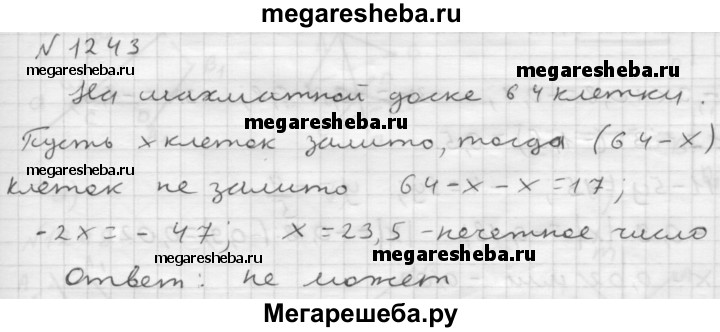 megaresheba.ru
N 1243
megaresheba.ru
megaresheba.ru
На шахматной доске, 64 клетки.
megaresheba.ru
Пусть х клеток залито, тогда (64-х)
клеток не залито 64-х-х=17;
-2х=-47; х=23,5 -нечетное число
megaresheba.ru
megaresheba.ru
Ответ: не может
Мегарешеба.ру